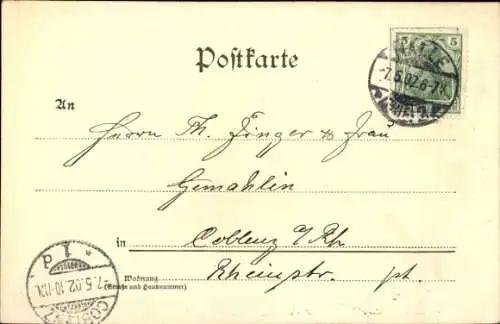 Postkarte
5 5
-7.5.02.6-7N.
An
Herrn Th. Finger & Frau
Gemahlin
in Coblenz a/Rh
Rheinstr. pt.
Wohnung
(Straße und Hausnummer)
1 d
-7.5.02.10-11N.
COBLENZ